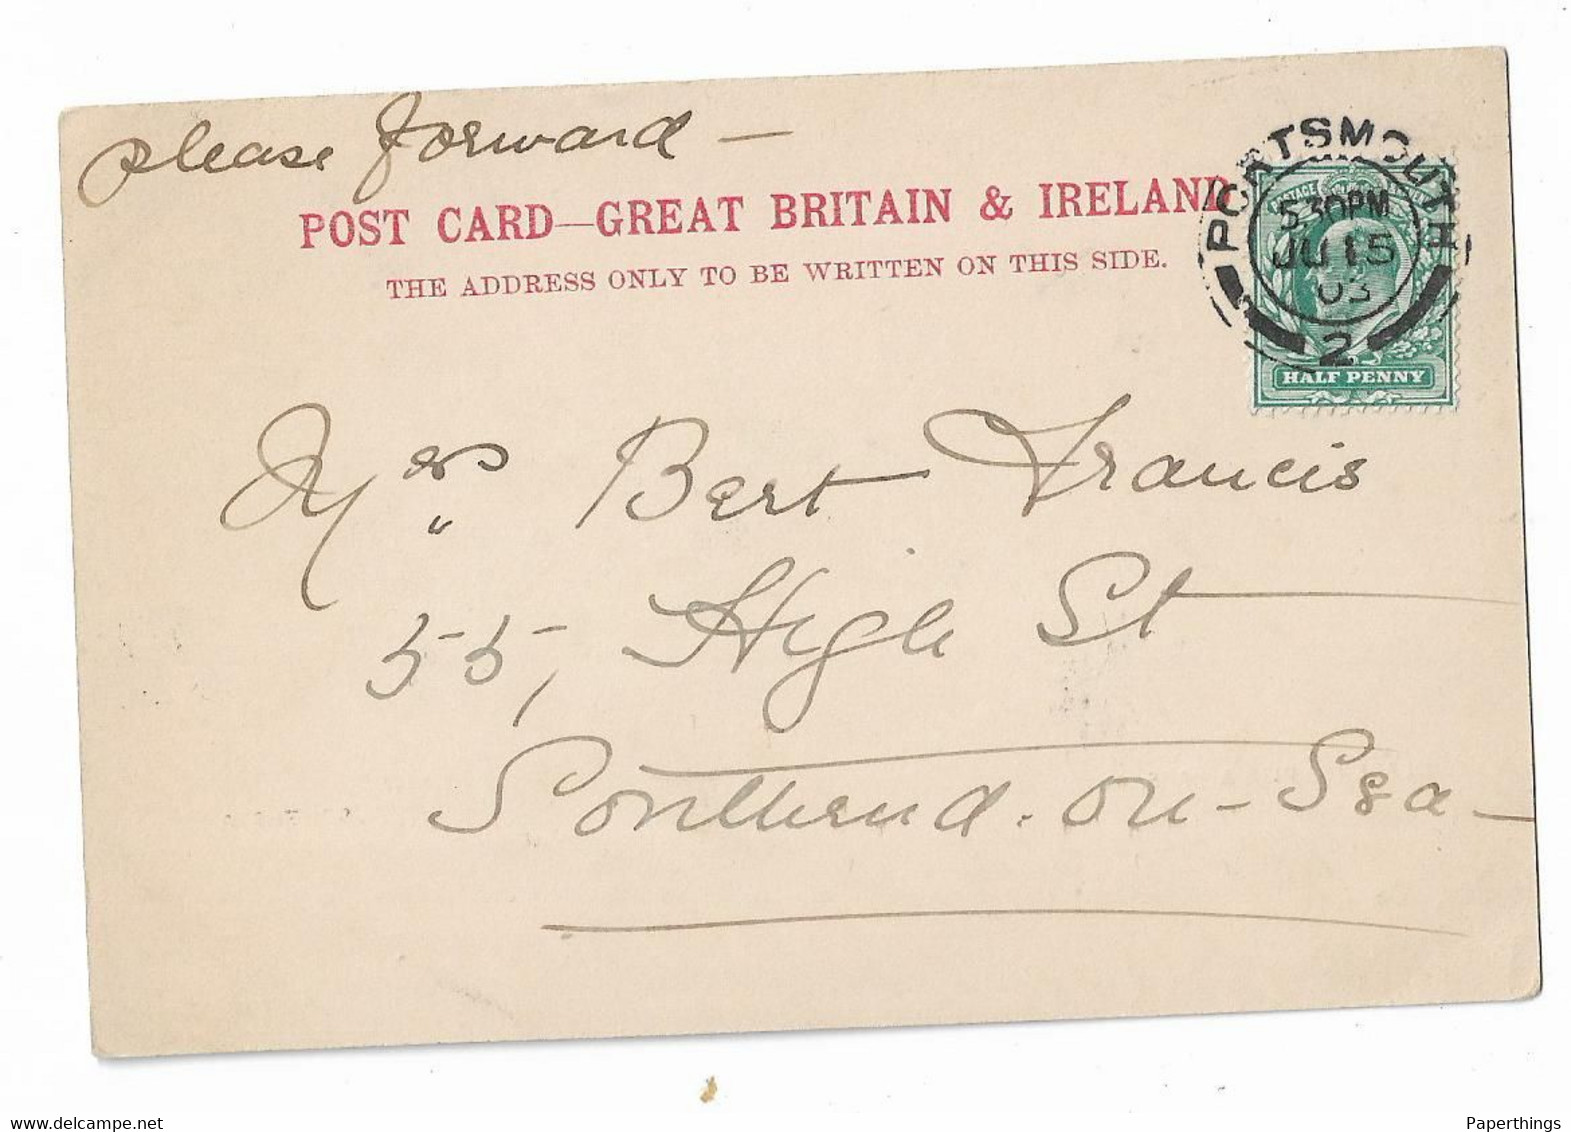 please forward —
POST CARD—GREAT BRITAIN & IRELAND
THE ADDRESS ONLY TO BE WRITTEN ON THIS SIDE.
PORTSMOUTH
5 30PM
JU 15
03
2
HALF PENNY
Mrs Bert Francis
55, High St
Southend-on-Sea
www.delcampe.net
Paperthings